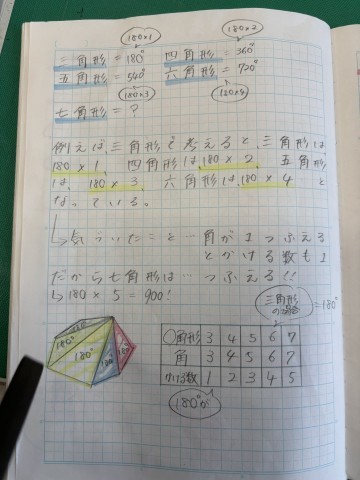 180×1 180×2
三角形=180° 四角形=360°
五角形=540° 六角形=720°
180×3 180×4
七角形=?
例えば、三角形で考えると、三角形は
180×1、四角形は、180×2、五角形
は、180×3、六角形は、180×4と
なっている。
↳気づいたこと…角が1つふえる
とかける数も1
だから七角形は…つふえる!!
↳180×5=900!
三角形の場合=180°
180° 180° 180 180
〇角形 3 4 5 6 7
角 3 4 5 6 7
かける数 1 2 3 4 5
180°が